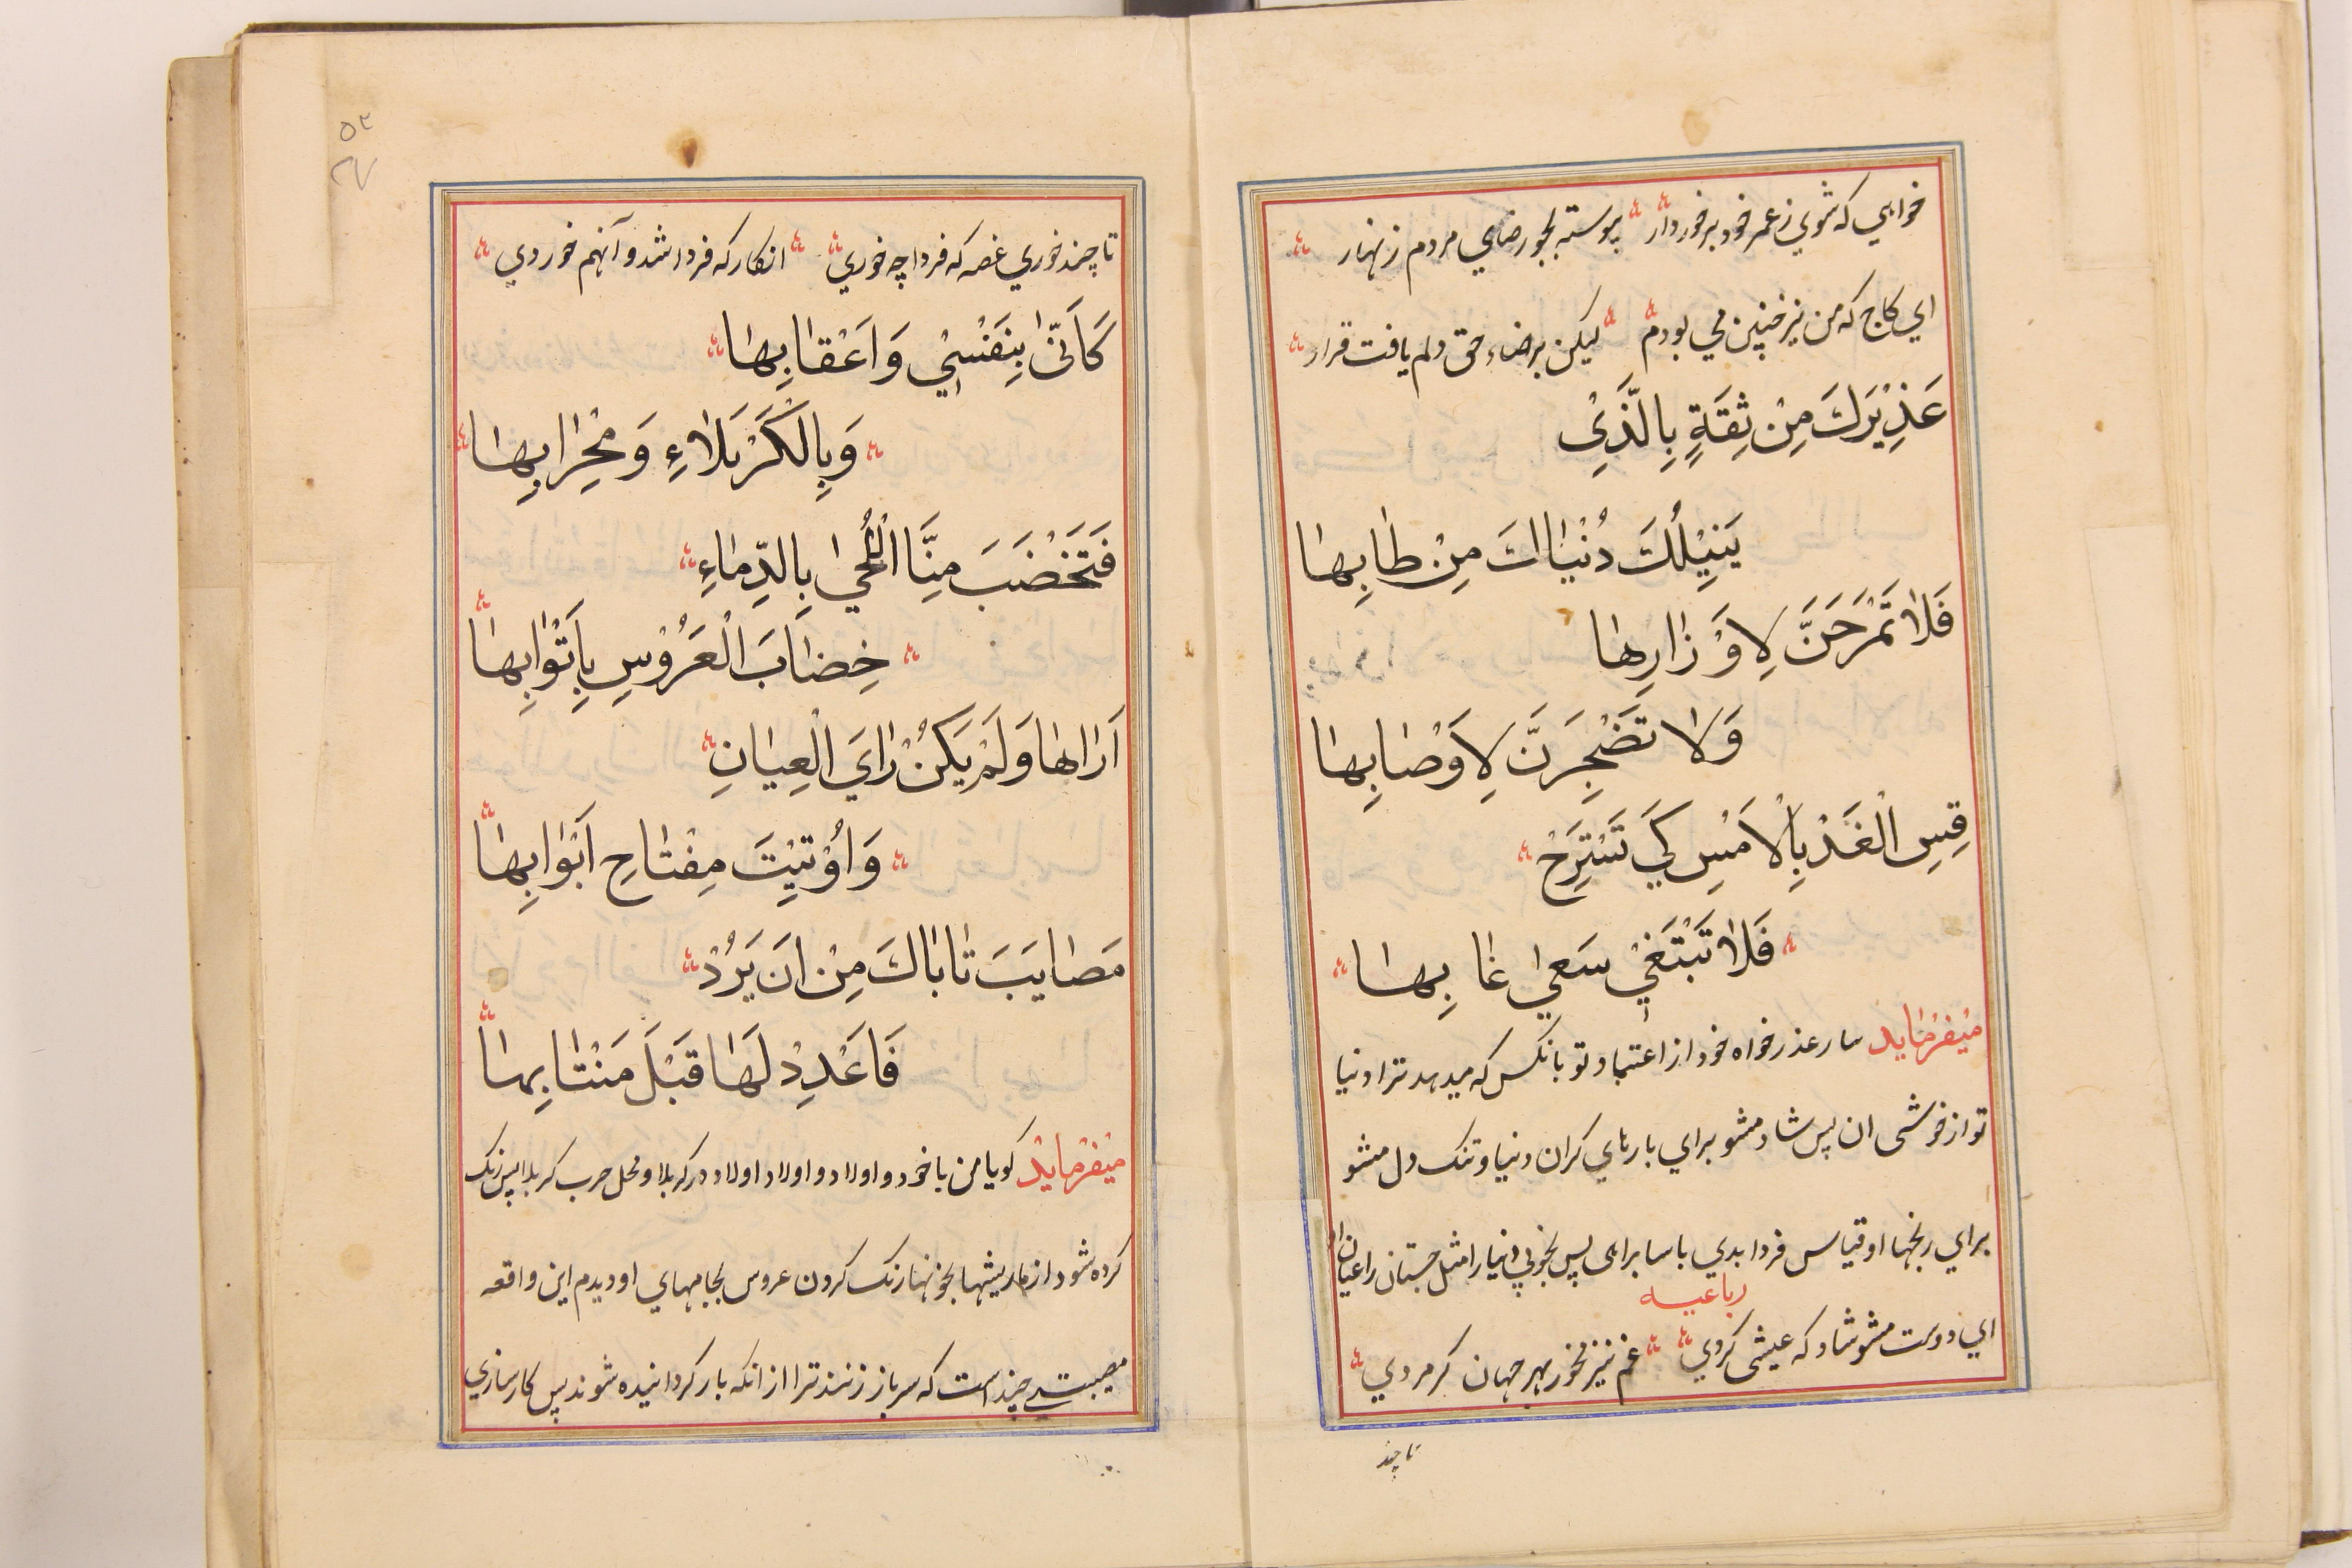 خواهي كه شوي ز عمر خود برخوردار پيوسته بجو رضاي مردم زنهار
اي كاج كه من نيز چنين مي بودم ليكن برضاء حق دلم يافت قرار
عَذِيْرَكَ مِنْ ثِقَةٍ بِالَّذَيْ
يَنِيْلُكَ دُنْيَاكَ مِنْ طابِها
فَلا تَمْرَحَنَّ لِاَوْزارِها
وَلا تَضْجِرَنَّ لِاَوْصابِها
قِسِ الْغَدْ بِالْاَمْسِ كَي تَسْتَرِحْ
فَلا تَبْتَغيْ سَعي غابِها
ميفرمايد عذرخواه خود از اعتماد تو بانكس كه ميدهد ترا دنيا
تو از خوشى ان پس شاد مشو براي بارهاي كران دنيا و تنك دل مشو
براي رنجها او قياس فردا بدي پس بجوبي دنيا را مثل جستن راغبان
رباعيه
اي دوست مشو شاد كه عيشى كردي غم نيز مخور بهر جهان كر مردي
تا چند
۵۲
تا چند خوري غصه كه فردا چه خوري انكار كه فردا شد و آنهم خوردي
كَاَنّى بِنَفْسيْ وَاَعْقابِها
وَبِالْكَرْبَلاءِ وَمِحْرابِها
فَتَخْضَبَ مِنَّا اللُّحيٰ بِالدِّماءِ
خِضابَ الْعَرُوْسِ بِاَثْوابِها
اَراها وَلَمْ يَكُنْ رايَ الْعِيانِ
وَاُوْتِيْتَ مِفْتاحِ اَبْوابِها
مَصايَبَ تاباكَ مِنْ اَنَ يَرُدْ
فَاَعْدِدْ لَها قَبْلَ مَنْتابِها
ميفرمايد كويا من با خود و اولاد و اولاد اولاد در كربلا و محل حرب كربلا پس رنك
كرده شود از ما ريشها بخونها رنك كردن عروس بجامهاي او ديدم اين واقعه
مصيبت چند است كه سرباز زنند ترا از انكه باز كردانيده شوند پس كارسازي